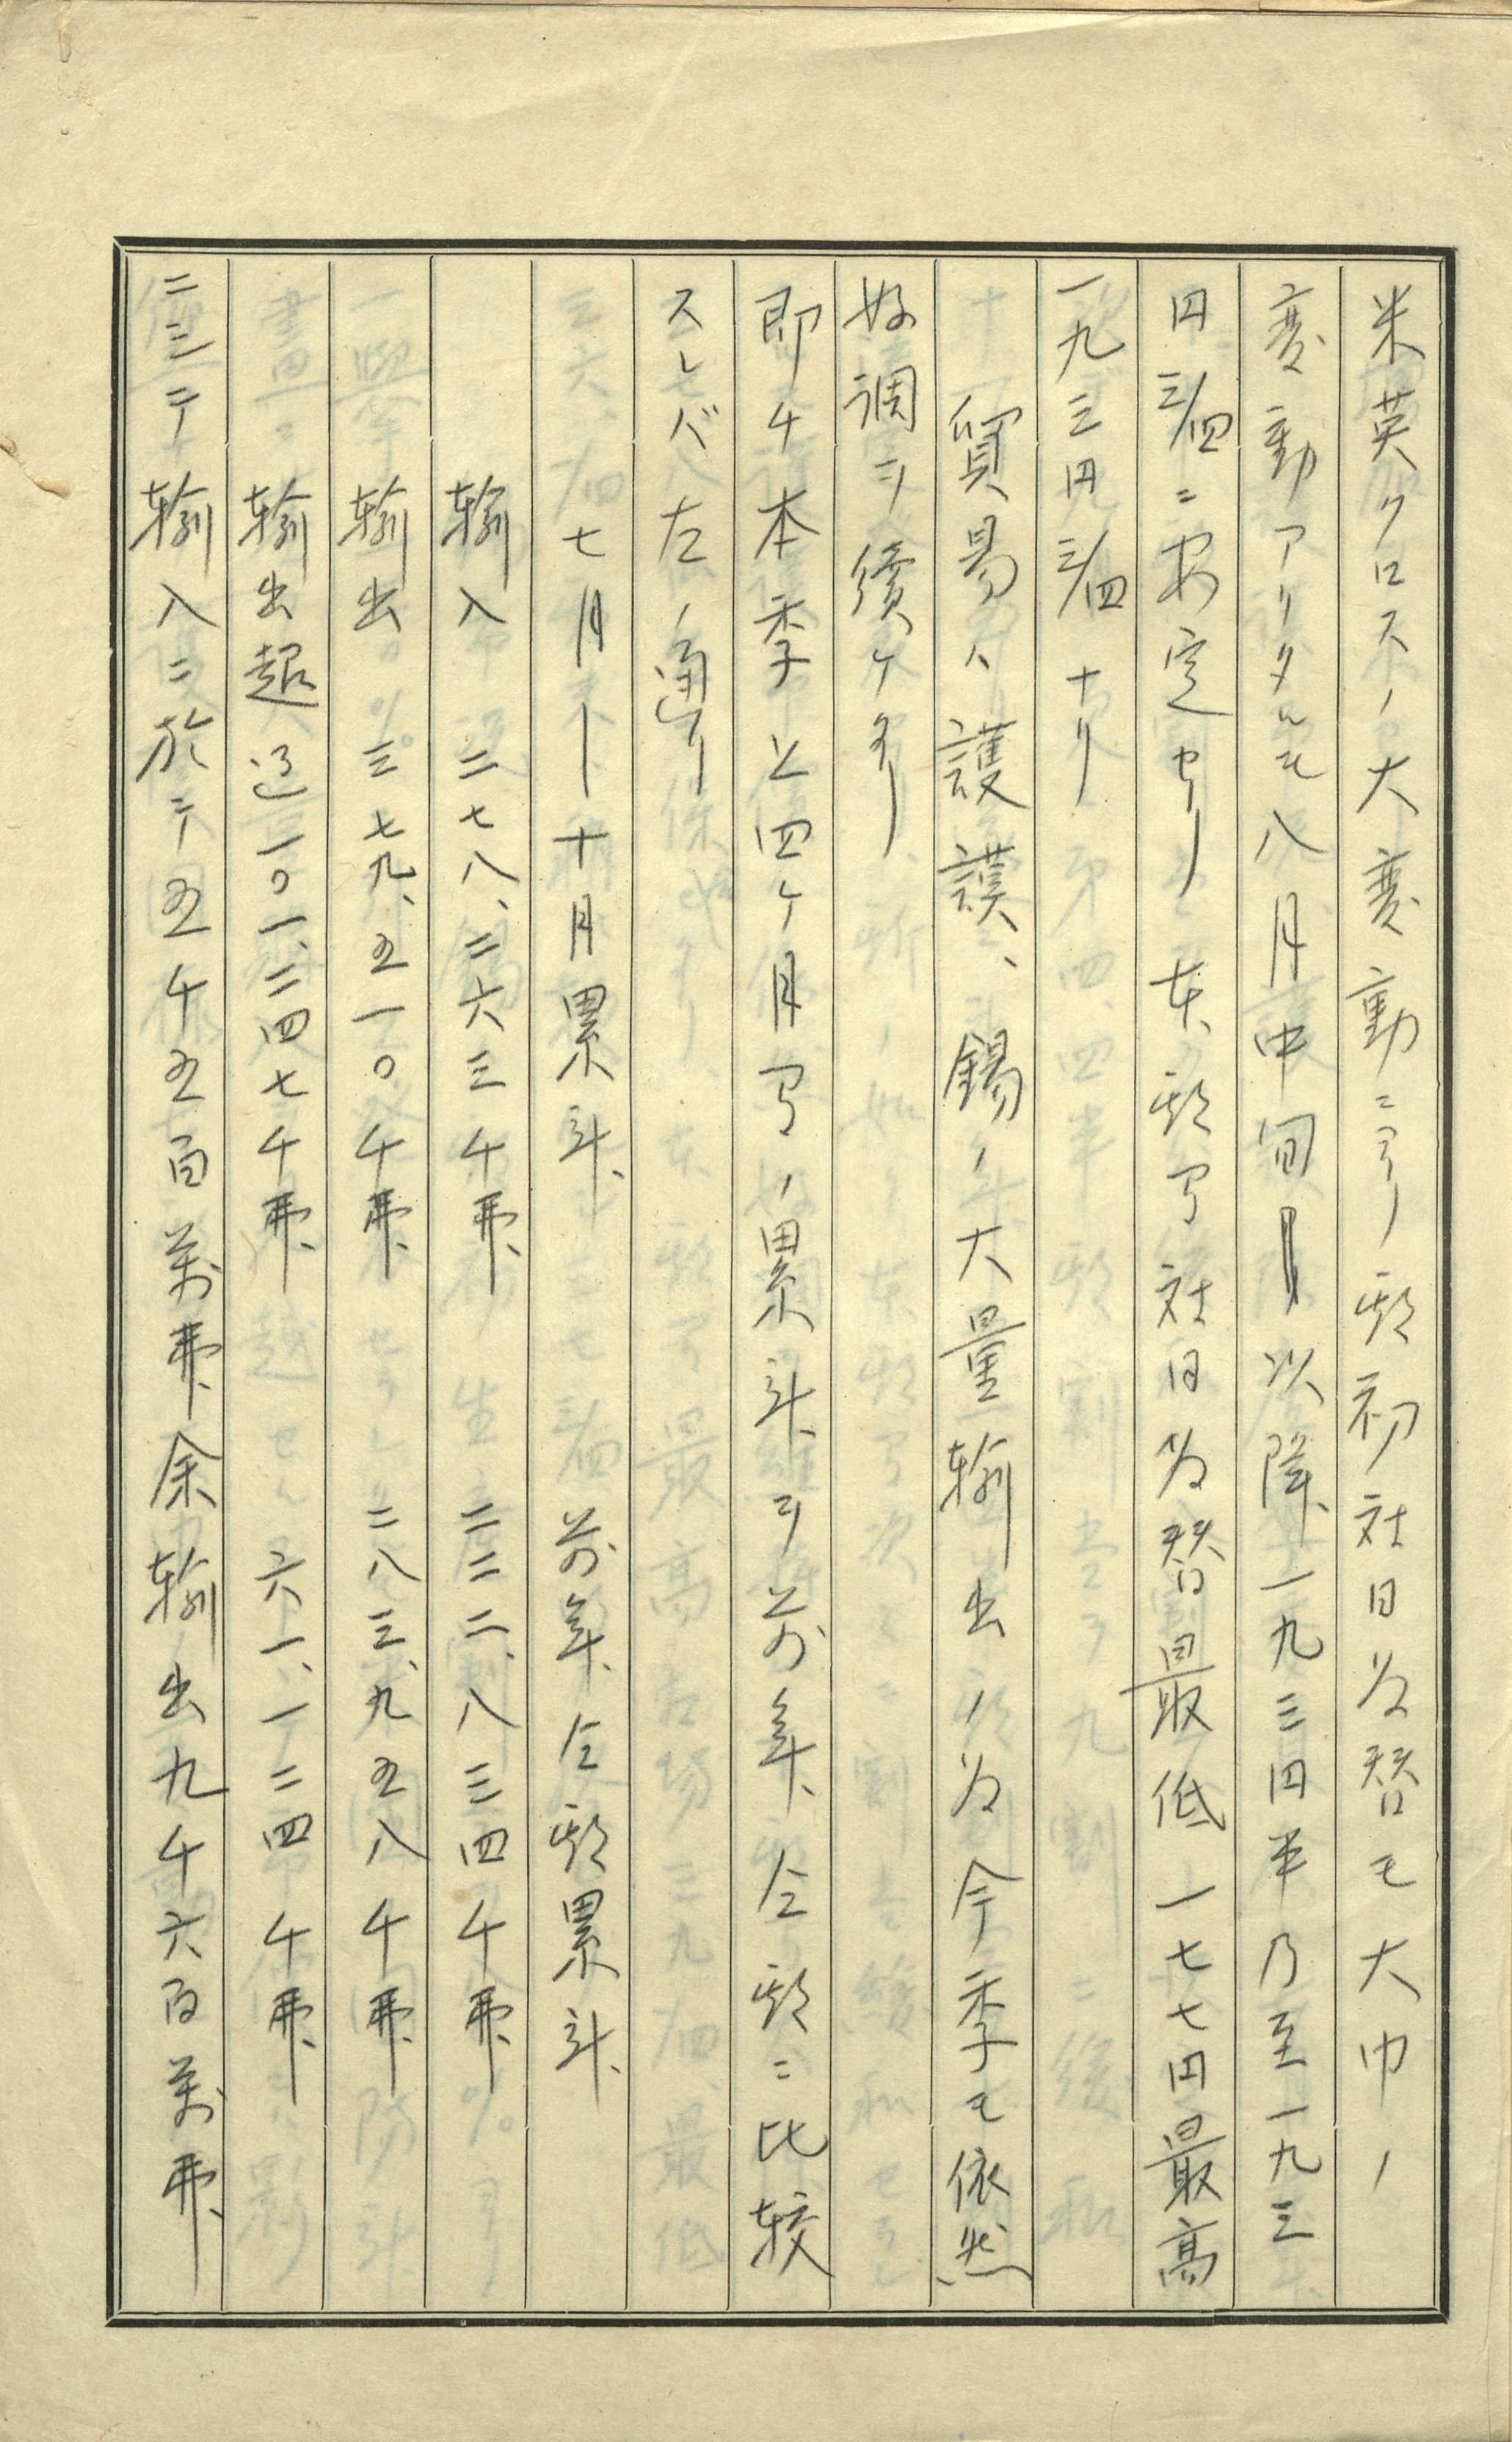 米英クロスノ大変動ニヨリ期初対日為替モ大巾ノ
変動アリタルモ八月中旬以降一九三円半乃至一九三
円三/四ニ安定セリ 本期間対日為替最低一七七円最高
一九三円三/四ナリ
貿易ハ護謨、錫ノ大量輸出ノ為今季モ依然
好調ヲ続ケタリ
即チ本季上四ケ月間ノ累計ヲ前年仝期ニ比較
スレバ左ノ通リ
七月―十月累計 前年仝期累計
輸入 二七八、二六三千弗 二二二、八三四千弗
輸出 三七九、五一〇千弗 二八三、九五八千弗
輸出超過 一〇一、二四七千弗 六一、一二四千弗
ニシテ輸入ニ於テ五千五百萬弗余輸出九千六百萬弗